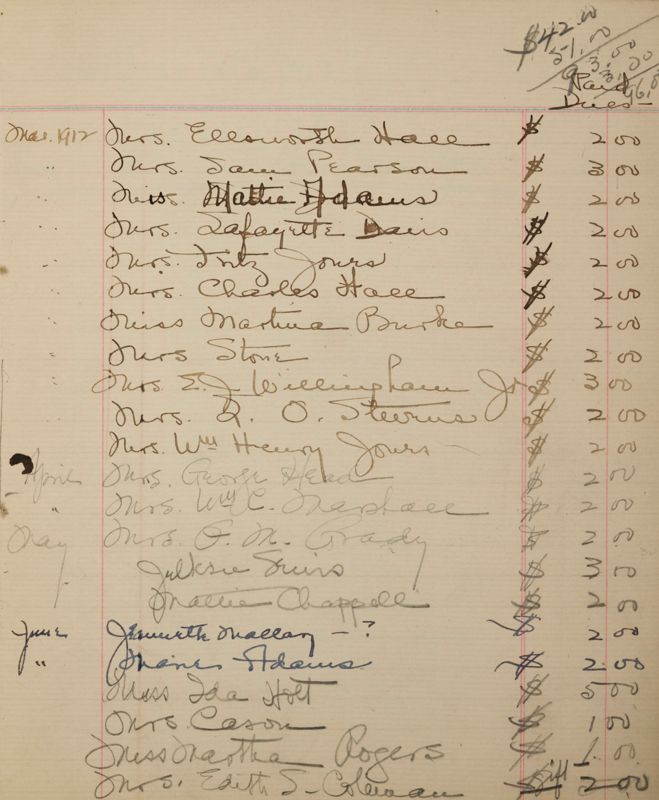 $42.00
51.00
93.00
3.00
96.0
Paid
Dues—
Mar. 1912 Mrs. Ellsworth Hall $ 2 00
" Mrs. Sam Pearson $ 3 00
" Miss. Mattie Adams $ 2 00
" Mrs. Lafayette Davis $ 2 00
" Mrs. Fritz Jones $ 2 00
" Mrs. Charles Hall $ 2 00
" Miss Martina Burke $ 2 00
" Mrs Stone $ 2 00
" Mrs. E. J. Willingham Jr $ 3 00
Mrs. R. O. Stevens $ 2 00
Mrs. Wm Henry Jones $ 2 00
April Mrs. George Head $ 2 00
" Mrs. Wm C. Marshall $ 2 00
May Mrs. P. M. Grady $ 2 00
$ 3 00
Mattie Chappell $ 2 00
June Mallary — ? $ 2 00
" Adams $ 2.00
Miss Ida Holt $ 5 00
Mrs Cason $ 1 00
Miss Martha Rogers $ 1.00
Mrs. Edith S. Coleman $ gift — 2 00